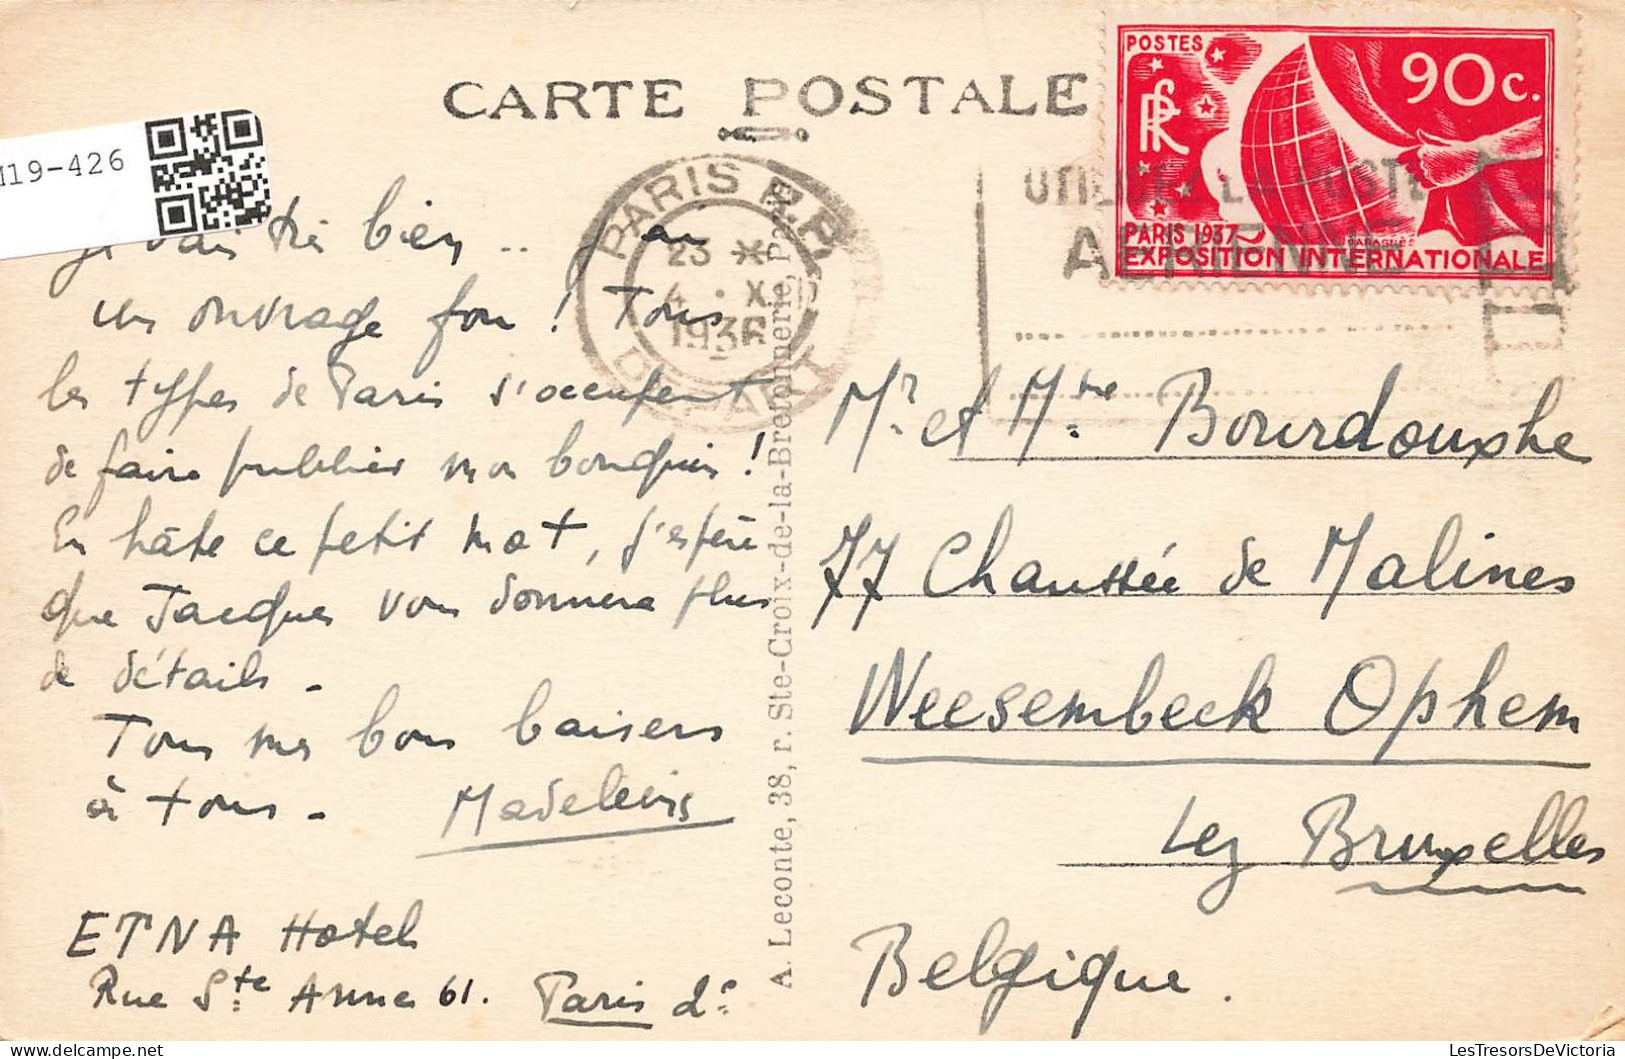 CARTE POSTALE
POSTES
90c.
RF
PARIS 1937
EXPOSITION INTERNATIONALE
PARIS R.P.
23
4 · X
1936
DEPART
UTILISEZ LA POSTE
AERIENNE
119-426
Je vais très bien .. J'ai
un ouvrage fou ! Tous
les types de Paris s'occupent
de faire publier mon bouquin !
En hâte ce petit mot, j'espère
que Jacques vous donnera plus
de détails -
Tous mes bons baisers
à tous -
ETNA Hotel
Rue Ste Anne 61. Paris 2e
A. Leconte, 38, r. Ste-Croix-de-la-Bretonnerie, Paris
Mr. et Mme Bourdouxhe
77 Chaussée de Malines
Weesembeek Ophem
Lez Bruxelles
Belgique.
LesTresorsDeVictoria
delcampe.net